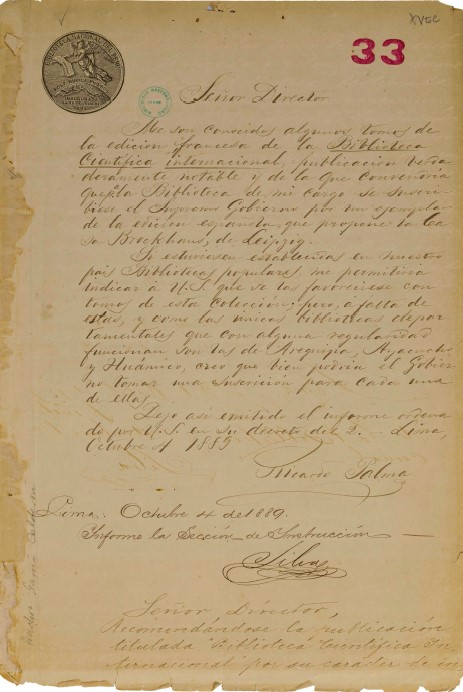 XVEC
33
BIBLIOTECA NACIONAL DEL PERU
Señor Director
Me son conocidos algunos tomos de
la edicion francesa de la Biblioteca
Cientifica internacional, publicacion verda
deramente notable y de la que convendria
que pa la Biblioteca de mi cargo se suscri
biese el Supremo Gobierno por un ejemplar
de la edicion española, que propone la Ca
sa Brockhaus, de Leipzig.
Si estuviesen establecidas en nuestro
pais Bibliotecas populares, me permitiria
indicar á U.S. que se las favoreciese con
tomos de esta colección; pero, á falta de
estas, y como las únicas bibliotecas depar
tamentales que con alguna regularidad
funcionan son las de Arequipa, Ayacucho
y Huánuco, creo que bien podria el Gobier
no tomar una suscrición para cada una
de ellas.
Dejo asi emitido el informe ordena
do por U.S. en su decreto del 2. — Lima,
Octubre 4 1889
Ricardo Palma
Lima. Octubre 4 de 1889.
Informe la Sección de Instrucción —
Silva
Señor Director,
Recomendándose la publicación
titulada "Biblioteca Cientifica In
ternacional" por su carácter de in